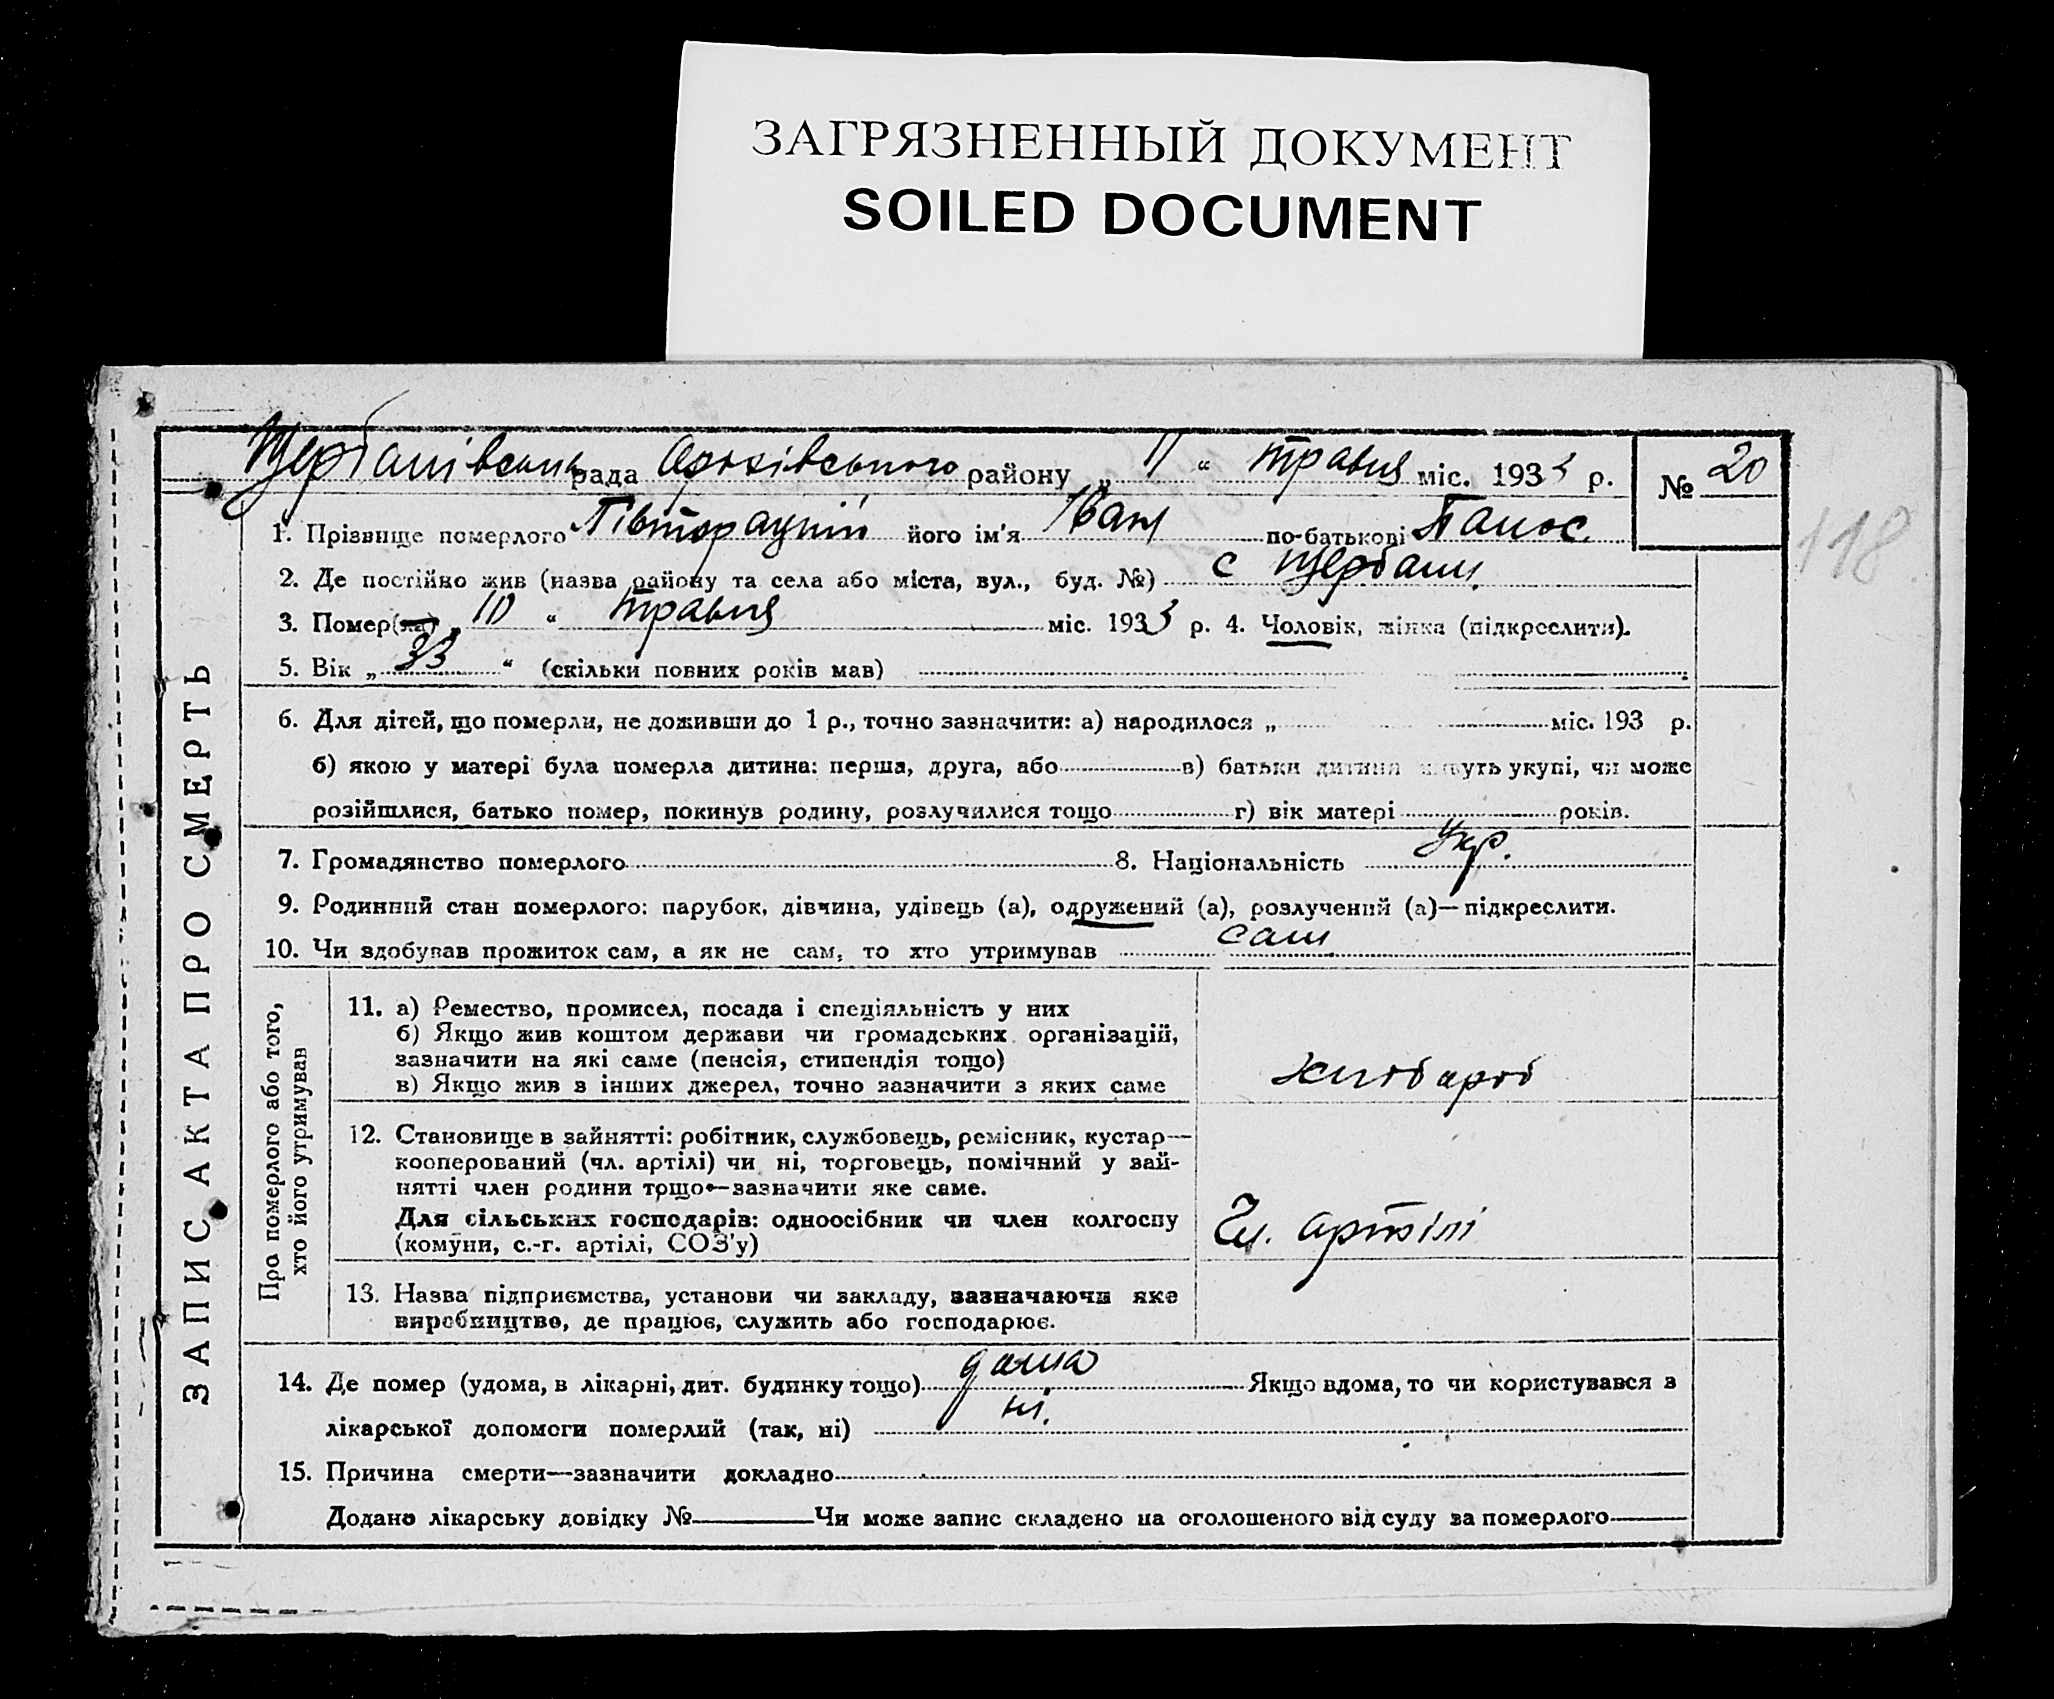 ЗАГРЯЗНЕННЫЙ ДОКУМЕНТ
SOILED DOCUMENT
Щербанівська рада району „ 11 “ травня міс. 1933 р. № 20
118
1. Прізвище померлого його ім'я Іван по-батькові Панос.
2. Де постійно жив (назва району та села або міста, вул., буд. №) с Щербани.
3. Помер(ла) „ 10 “ травня міс. 1933 р. 4. Чоловік, жінка (підкреслити).
5. Вік „ 33 “ (скільки повних років мав)
6. Для дітей, що померли, не доживши до 1 р., точно зазначити: а) народилося „ міс. 193 р.
б) якою у матері була померла дитина: перша, друга, або в) батьки дитини живуть укупі, чи може
розійшлися, батько помер, покинув родину, розлучилися тощо г) вік матері років.
7. Громадянство померлого 8. Національність Укр.
9. Родинний стан померлого: парубок, дівчина, удівець (а), одружений (а), розлучений (а)—підкреслити.
10. Чи здобував прожиток сам, а як не сам, то хто утримував сам
ЗАПИС АКТА ПРО СМЕРТЬ
Про померлого або того,
хто його утримував
11. а) Ремество, промисел, посада і спеціяльність у них
б) Якщо жив коштом держави чи громадських організацій,
зазначити на які саме (пенсія, стипендія тощо)
в) Якщо жив з інших джерел, точно зазначити з яких саме
хлібороб
12. Становище в зайнятті: робітник, службовець, ремісник, кустар—
кооперований (чл. артілі) чи ні, торговець, помічний у зай-
нятті член родини тощо—зазначити яке саме.
Для сільських господарів: одноосібник чи член колгоспу
(комуни, с.-г. артілі, СОЗ'у)
Чл. артілі
13. Назва підприємства, установи чи закладу, зазначаючи яке
виробництво, де працює, служить або господарює.
14. Де помер (удома, в лікарні, дит. будинку тощо) дома Якщо вдома, то чи користувався з
лікарської допомоги померлий (так, ні) ні.
15. Причина смерти—зазначити докладно
Додано лікарську довідку № Чи може запис складено на оголошеного від суду за померлого